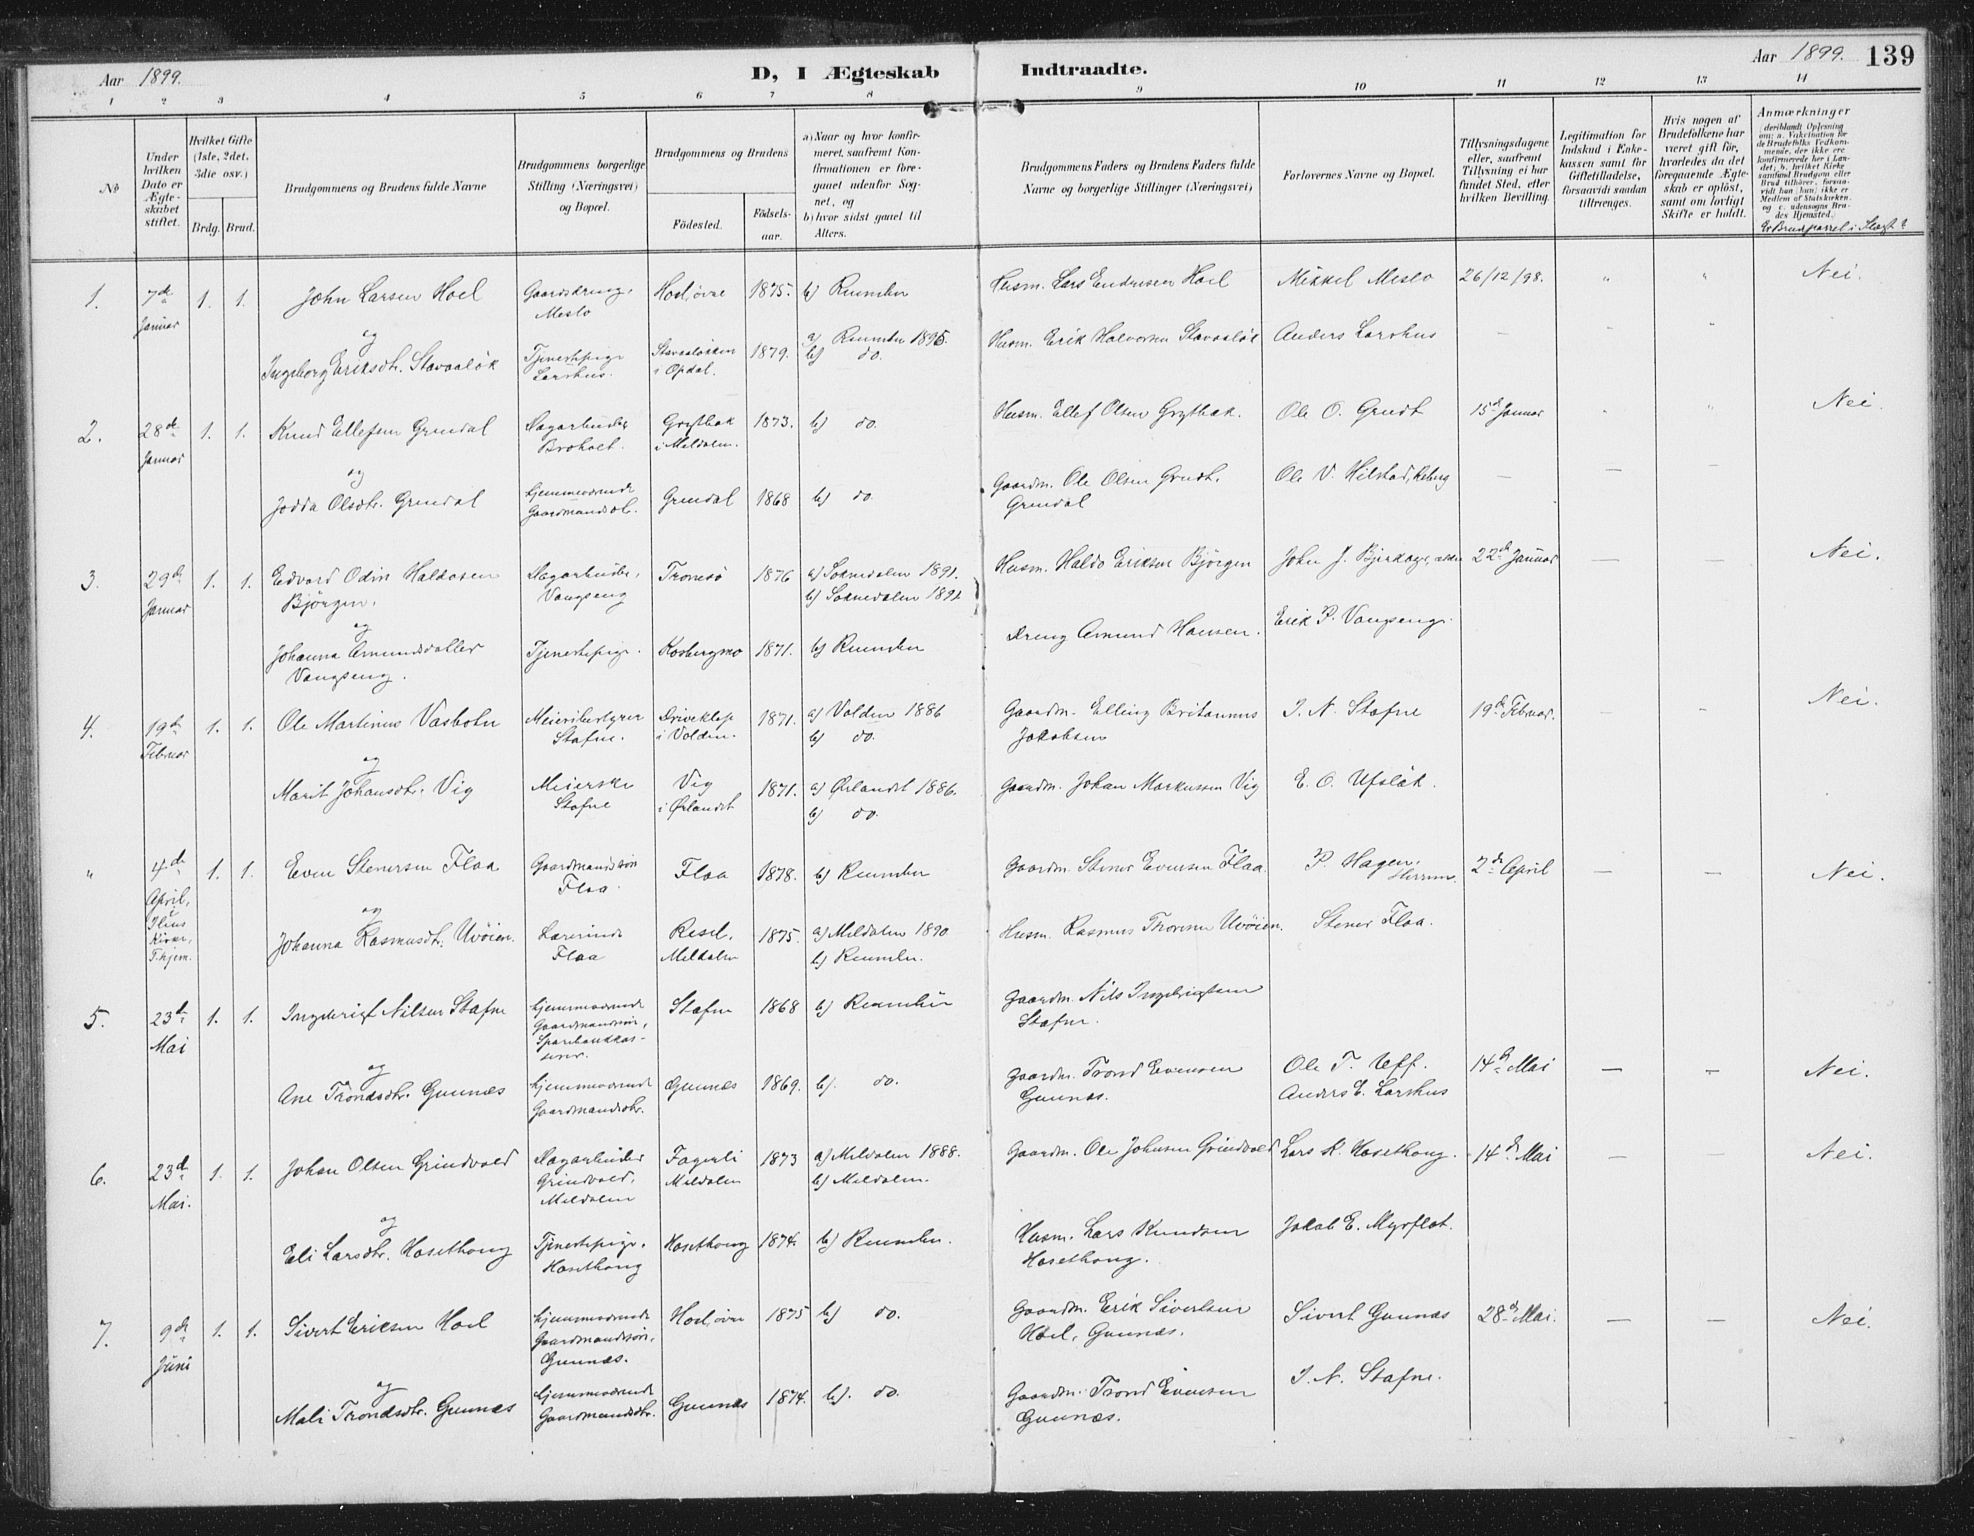 Aar 1899.
D, I Ægteskab Indtraadte.
Aar 1899. 139
1 2 3 4 5 6 7 8 9 10 11 12 13 14
No
Under hvilken Dato er Ægteskabet stiftet.
Hvilket Gifte (1ste, 2det, 3die osv.)
Brdg. Brud.
Brudgommens og Brudens fulde Navne
Brudgommens borgerlige Stilling (Næringsvei) og Bopæl.
Brudgommens og Brudens
Födested.
Födselsaar.
a) Naar og hvor konfirmeret, saafremt Konfirmationen er foregaaet udenfor Sognet, og
b) hvor sidst gaaet til Alters.
Brudgommens Faders og Brudens Faders fulde Navne og borgerlige Stillinger (Næringsvei)
Forlovernes Navne og Bopæl.
Tillysningsdagene eller, saafremt Tillysning ei har fundet Sted, efter hvilken Bevilling.
Legitimation for Indskud i Enkekassen samt for Giftetilladelse, forsaavidt saadan tiltrænges.
Hvis nogen af Brudefolkene har været gift för, hvorledes da det foregaaende Ægteskab er oplöst, samt om lovligt Skifte er holdt.
Anmærkninger
deriblandt Oplysning om: a. Vakcination for de Brudefolks Vedkommende, der ikke ere konfirmerede her i Landet; b. hvilket Kirkesamfund Brudgom eller Brud tilhörer, forsaavidt han (hun) ikke er Medlem af Statskirken, og c. udensogns Brudes Hjemsted.
Er Brudparret i Slægt?
1. 7de Januar 1. 1. John Larsen Hoel Gaardsdreng, Meslo Hoel, øvre 1875. b) Rennebu Husm. Lars Endresen Hoel Mikkel Meslo 26/12/98. " " Nei.
og
Ingeborg Eriksdtr. Stavaaløk Tjenestepige Larshus Stavaaløkken i Opdal. 1879. a) Rennebu 1895. b) do. Husm. Erik Halvorsen Stavaaløk Anders Larshus — " "
2. 28de Januar 1. 1. Knud Ellefsen Grindal Dagarbeider Broholt Grytbak i Meldalen. 1873. b) do. Husm. Ellef Olsen Grytbak. Ole O. Grudt 15de Januar " " Nei.
og
Jodda Olsdtr. Grindal hjemmeværende Gaardmandsdtr. Grindal 1868 b) do. Gaardm. Ole Olsen Grudt. Grindal Ole V. Hilstad, — — —
3. 29de Januar 1. 1. Edvard Odin Haldosen Bjørgen. Dagarbeider, Vangseng Tromsø 1876 a) Soknedalen 1891. b) Soknedalen 1891 Husm. Haldo Eriksen Bjørgen John J. 22de Januar — — Nei.
og
Johanna Amundsdatter Vangseng. Tjenestepige. Kosbergmo 1871. b) Rennebu Dreng Amund Hansen. Erik P. Vangseng.
4. 19de Februar 1. 1. Ole Martinus Vasbotn Meieribestyrer Stafne. Driveklep i Volden. 1871. a) Volden 1886 b) do. Gaardm. Elling Britanus Jakobsen I. N. Stafne 19de Februar. — - Nei.
og
Marit Johansdtr. Vig Meierske Stafne Vig i Ørlandet 1871. a) Ørlandet 1886. b) do. Gaardm. Johan Markussen Vig E. O. Ufsløk.
" 4de April, Ilens Kirke, T.hjem. 1. 1. Even Stenersen Flaa Gaardmandssøn Flaa. Flaa 1878. b) Rennebu Gaardm. Stener Evensen Flaa. P. Hagen, 2de April — — Nei.
og
Johanna Rasmusdtr. Uvöien. Lærerinde Flaa Resel, Meldalen 1875. a) Meldalen 1890 b) Rennebu. Husm. Rasmus Thoresen Uvöien. Stener Flaa.
5. 23de Mai 1. 1. Ingebrigt Nilsen Stafne hjemmeværende Gaardmandssøn, Sparebankkasserer. Stafne 1868 b) Rennebu Gaardm. Nils Ingebrigtsen Stafne.
og
Ane Trondsdtr. Gunnes hjemmeværende Gaardmandsdtr. Gunnes 1869. b). do. Gaardm. Trond Evensen Gunnæs. Ole T. Uff. Anders E. Larshus 14de Mai — - Nei.
6. 23de Mai. 1. 1. Johan Olsen Grindvold Dagarbeider Grindvold, Meldalen Fagerli Meldalen 1873 a) Meldalen 1888. b) Meldalen. Gaardm. Ole Johnsen Grindvold Lars K. Hosethaug. 14de Mai — — Nei.
og
Eli Larsdtr. Hosethaug Tjenestepige, Hosethaug Hosethaug 1874. b) Rennebu. Husm. Lars Knudsen Hosethaug. Jakob E. Myrflot.
7. 9de Juni 1. 1. Sivert Eriksen Hoel hjemmeværende Gaardmandssøn, Gunnæs. Hoel, øvre 1875 b) do. Gaardm. Erik Sivertsen Hoel, Gunnæs. Sivert Gunnæs 28de Mai. — — Nei.
og
Mali Trondsdtr. Gunnæs hjemmeværende Gaardmandsdtr. Gunnæs 1874. b). do. Gaardm. Trond Evensen Gunnæs. I. N. Stafne.